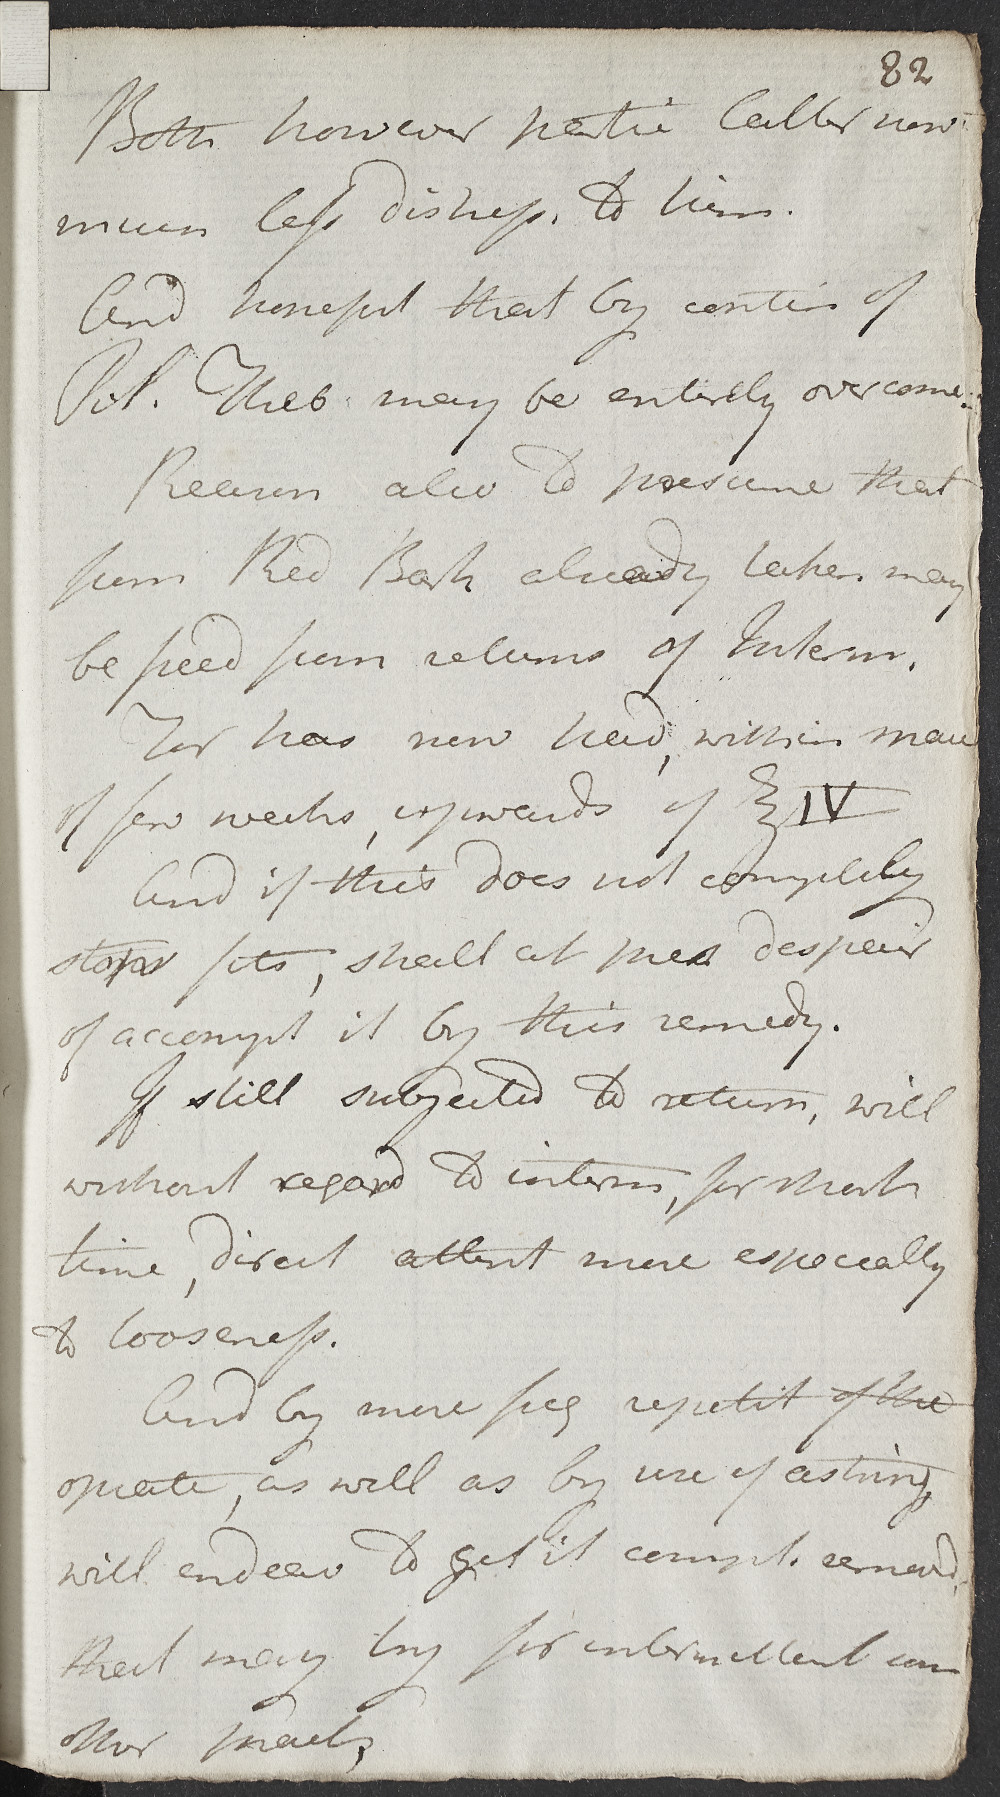 82
Both however partic latter now
much less distress. to him.
And hopeful that by contin of
Pil. Theb may be entirely overcome.
Reason also to presume that
from Red Bark already taken may
be freed from returns of Interm.
For has now had, within space
of few weeks, upwards of ℥IV
And if this does not completely
stop fits, shall at pres despair
of accompt it by this remedy.
If still subjected to return, will
without regard to interm, for short
time, direct attent more especially
to looseness.
And by more freq repetit of the
opiate, as well as by use of astring,
will endeav to get it compl. remov'd,
that may try for intermittent som
other pract,